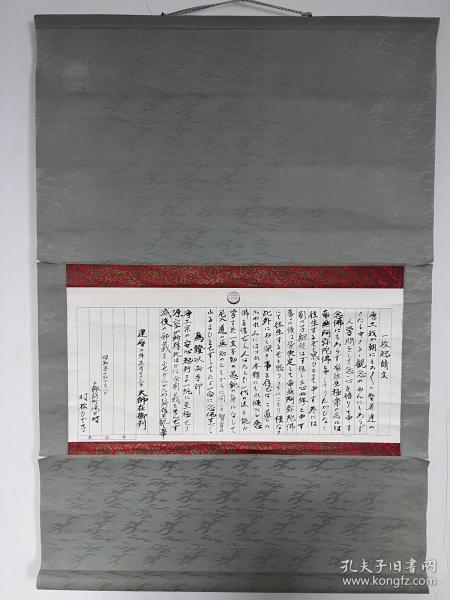 一枚起請文
唐土我が朝にもろ〳〵の智者達の
さたし申さるゝ観念の念にもあらず
又学問をして念の心を悟りて申す
念佛にもあらずたゞ往生極楽の為には
南無阿弥陀佛と申してうたがひなく
往生するぞと思ひとりて申す外には
別の子細候はず但し三心四修と申す
事の候は皆決定して南無阿弥陀佛
にて往生するぞと思ふ
此外に奥深き事を存ぜば二尊の
あわれみにはづれ本願にもれ候べし念
佛を信ぜん人はたとひ一代の法を能々
学すとも一文不知の愚鈍の身になして
尼入道の無智の
只一向に念佛すべし
為證以両手印
浄土宗の安心起行此一紙に至極せり
源空が所存此外に全く別義を存ぜず
滅後の邪義をふせがんが為に所存を記し畢
建暦二年正月二十三日 大師在御判
昭和五十
村松
孔夫子旧书网
www.kongfz.com